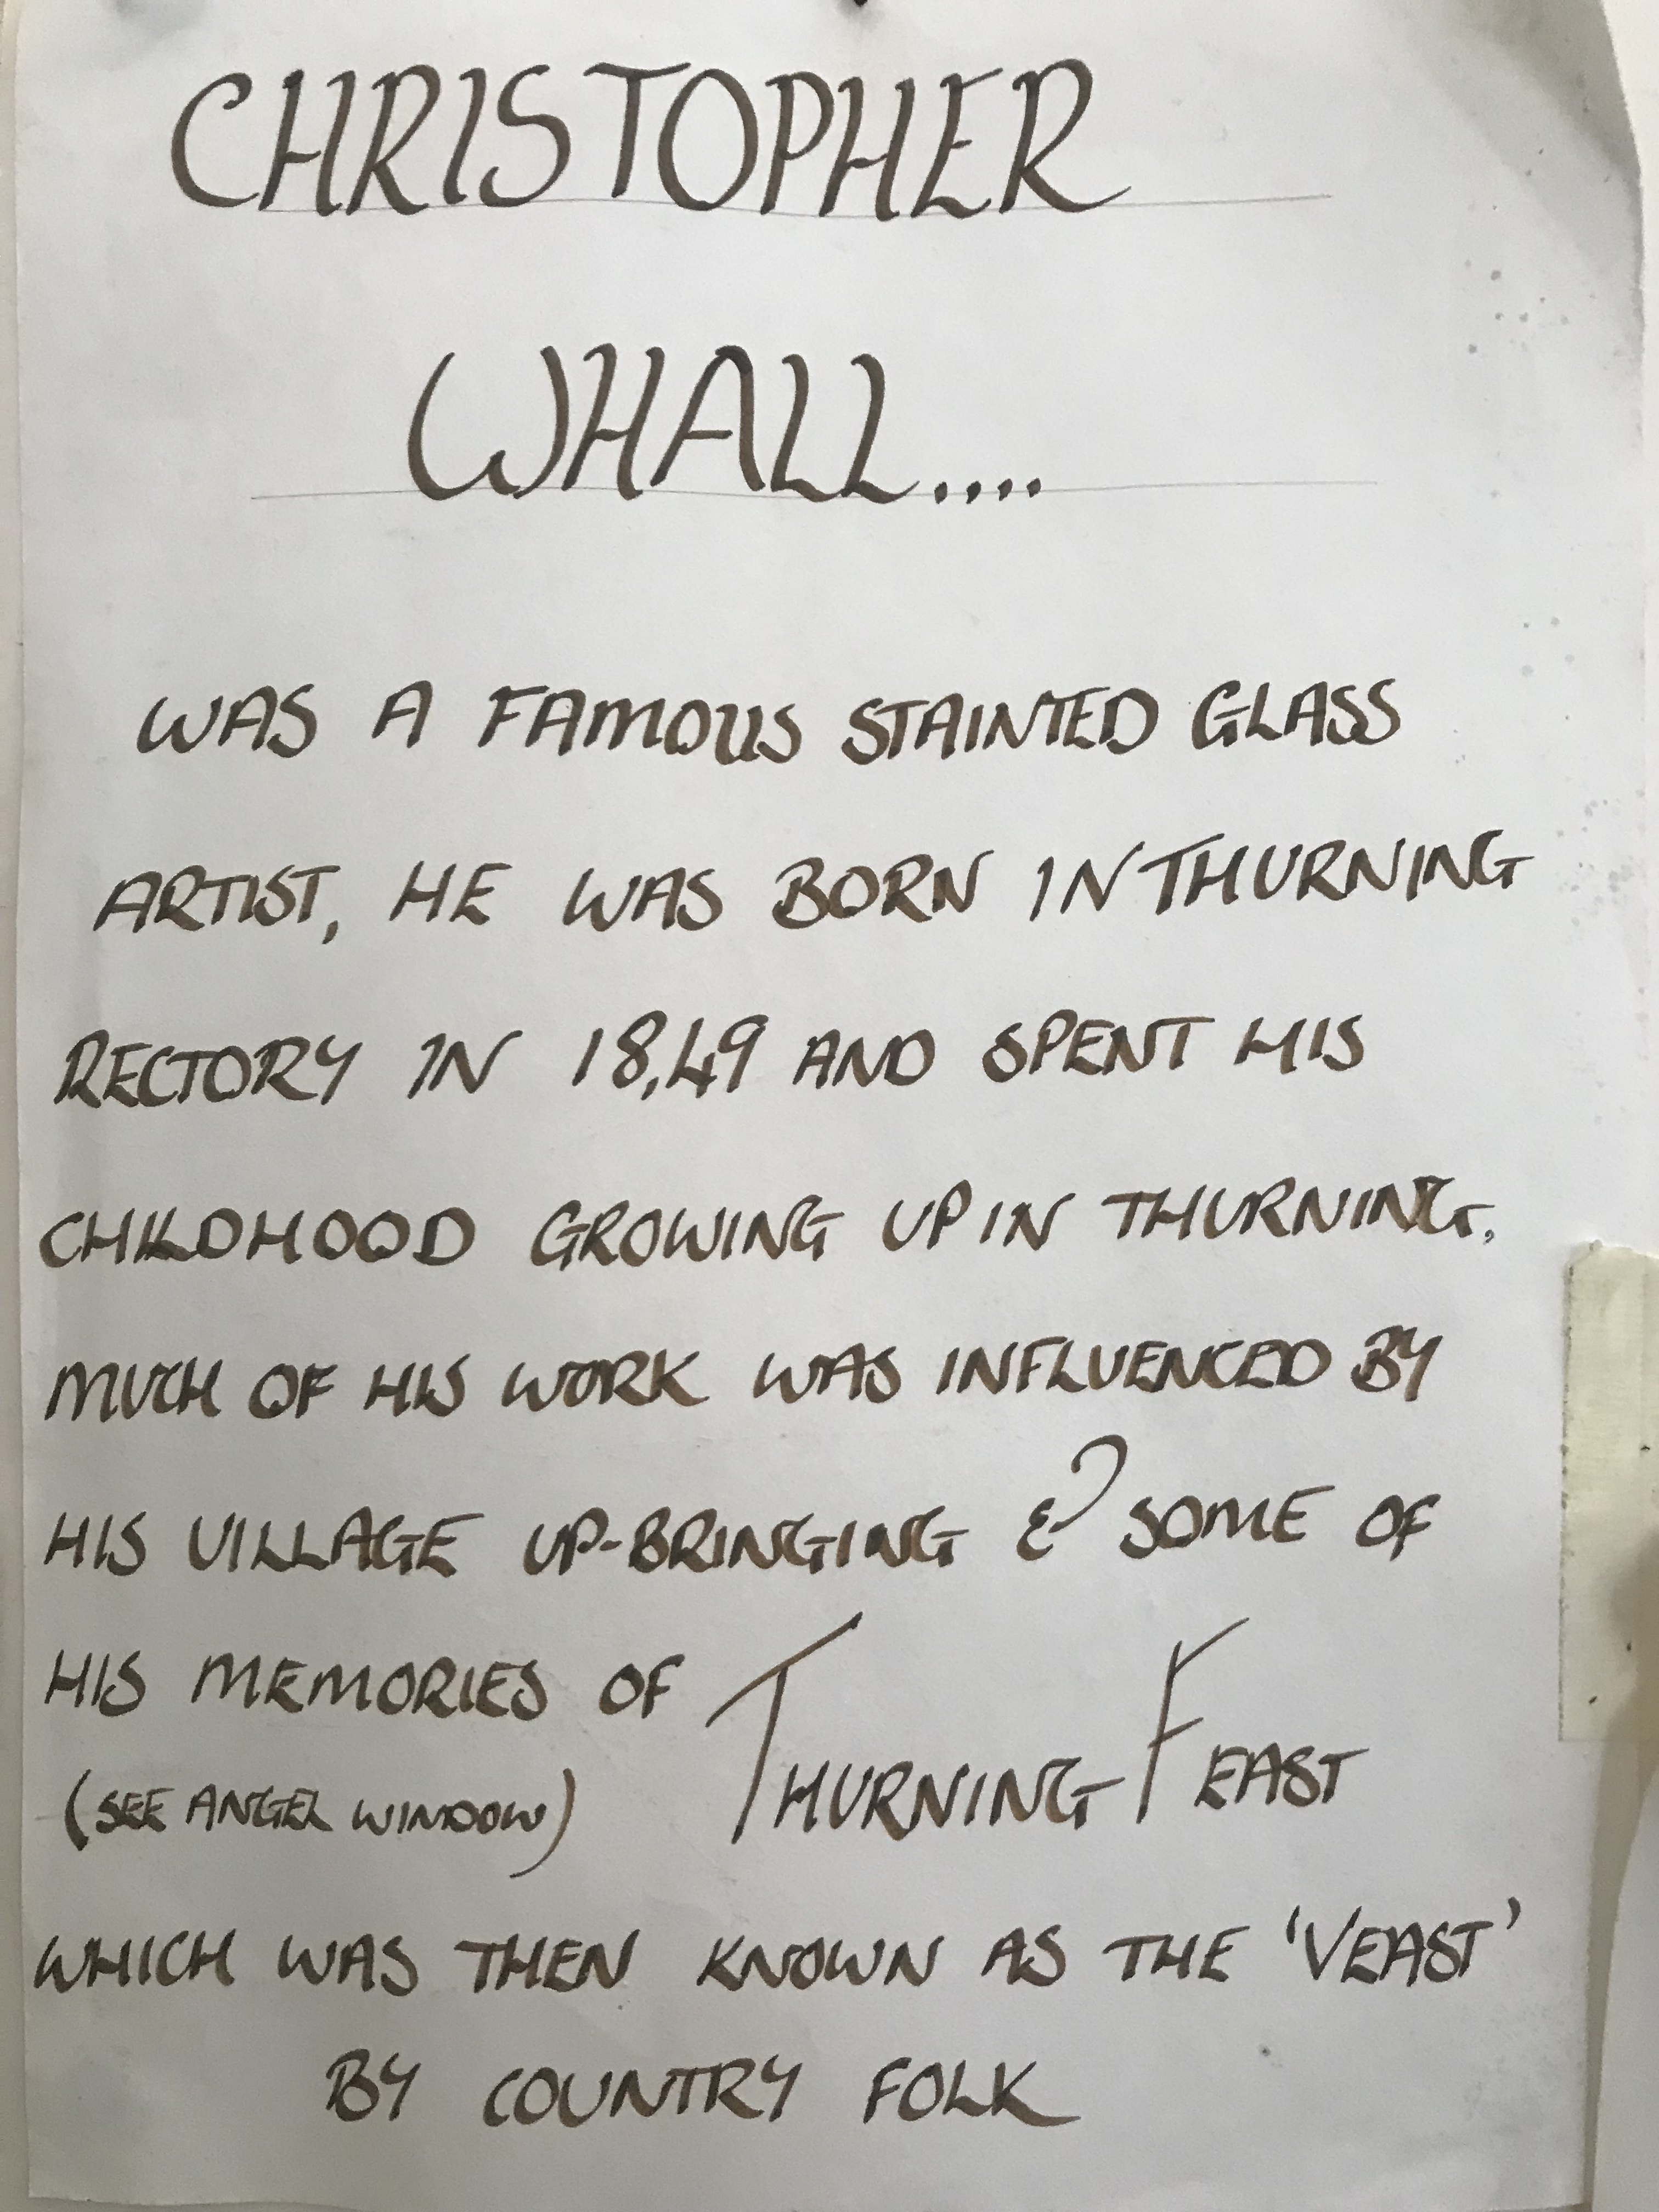 CHRISTOPHER
WHALL....
WAS A FAMOUS STAINTED GLASS
ARTIST, HE WAS BORN IN THURNING
RECTORY IN 18,49 AND SPENT HIS
CHILDHOOD GROWING UP IN THURNING.
MUCH OF HIS WORK WAS INFLUENCED BY
HIS VILLAGE UP-BRINGING & SOME OF
HIS MEMORIES OF THURNING FEAST
(SEE ANGEL WINDOW)
WHICH WAS THEN KNOWN AS THE 'VEAST'
BY COUNTRY FOLK